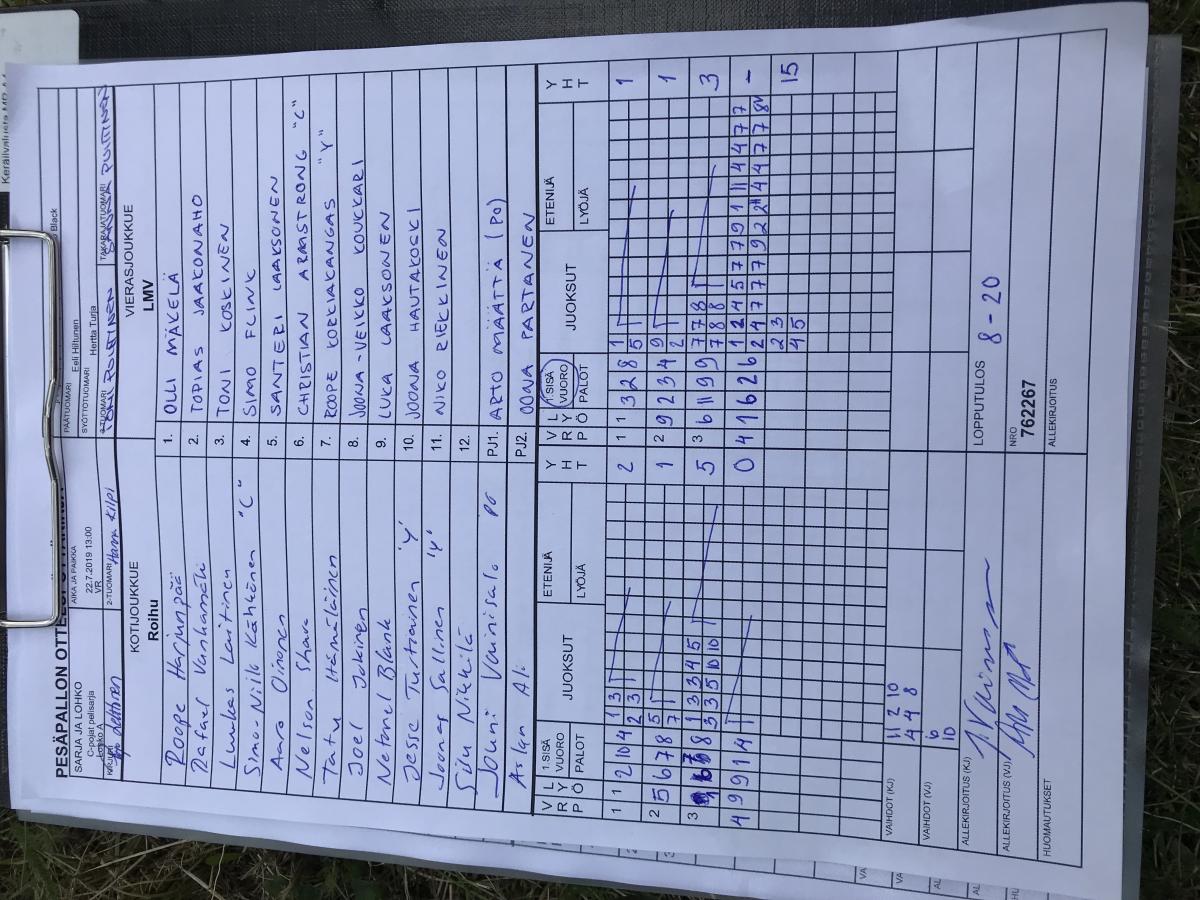 Keräilyvaluste
PESÄPALLON OTTELUPÖYTÄKIRJA
SARJA JA LOHKO
C-pojat pelisarja
Lohko A
AIKA JA PAIKKA
22.7.2019 13:00
VR
PÄÄTUOMARI
Eeli Hiltunen
Black
SYÖTTÖTUOMARI
Hertta Turja
KIRJURI
2-TUOMARI
3-TUOMARI
TAKARAJATUOMARI
KOTIJOUKKUE
Roihu
VIERASJOUKKUE
LMV
Roope Harjunpää 1. OLLI MÄKELÄ
Rafael Vanhamäki 2. TOPIAS JAAKONAHO
Luukas Laitinen 3. TONI KOSKINEN
Simo-Niilo Kähäinen "C" 4. SIMO FLINK
Aaro Oinonen 5. SANTERI LAAKSONEN
Nelson Shava 6. CHRISTIAN ARMSTRONG "C"
Tatu Hämäläinen 7. ROOPE KORKIAKANGAS "Y"
Joel Jokinen 8. JOONA-VEIKKO KOUKKARI
Netanel Blank 9. LUKA LAAKSONEN
Jesse Turtiainen 'Y' 10. JOONA HAUTAKOSKI
Joonas Sallinen 'Y' 11. NIKO PELKINEN
Silu Nikkilä 12.
Jouni Vainisalo PO PJ1. ARTO MÄÄTTÄ (PO)
Aslan Ali PJ2. OONA PARTANEN
VRP LYÖ 1.SISÄVUORO PALOT JUOKSUT ETENIJÄ LYÖJÄ YHT
VRP LYÖ 1.SISÄVUORO PALOT JUOKSUT ETENIJÄ LYÖJÄ YHT
1 1 2 10 4 1 3 2
2 3
1 1 3 2 8 1 1
5
2 5 6 7 8 5 1
7
2 9 2 3 4 9 1
2
3 7 8 1 3 3 4 5 5
3 3 5 10 10
3 6 11 9 9 7 7 8 3
7 8 8
4 9 9 1 4 0
4 1 6 2 6 1 2 4 5 7 7 9 1 11 4 4 7 7 -
2 4 7 7 7 9 2 2 4 4 7 7 8V
2 3 15
4 5
VAIHDOT (KJ)
11 2 10
4 4 8
VAIHDOT (VJ)
6
10
ALLEKIRJOITUS (KJ)
LOPPUTULOS
8 - 20
ALLEKIRJOITUS (VJ)
NRO
762267
HUOMAUTUKSET
ALLEKIRJOITUS